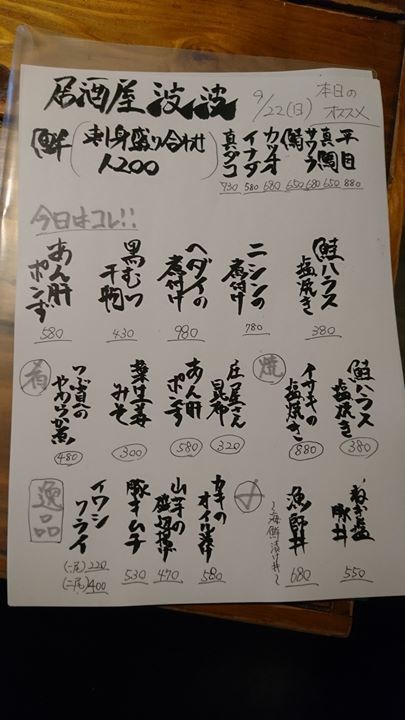 居酒屋 波波
9/22(日)
本日の
オススメ
鮮
刺身盛り合わせ
1,200
平目 880
真鯛 650
サワラ 680
鯖 650
カツオ 680
イナダ 580
真ダコ 930
今日はコレ!!
鮭ハラス塩焼き 380
ニシンの煮付け 780
ヘダイの煮付け 980
黒むつ干物 430
あん肝ポンず 580
焼
鮭ハラス塩焼き 380
イサキの塩焼き 880
肴
庄屋さん昆布 320
あん肝ポンず 580
葉生姜みそ 300
つぶ貝のやわらか煮 480
〆
ねぎ塩豚丼 550
漁師丼 680
~海鮮漬け丼~
逸品
カキのオイル漬け 580
山芋の磯辺揚 470
豚キムチ 530
イワシフライ
(一尾) 220
(二尾) 400